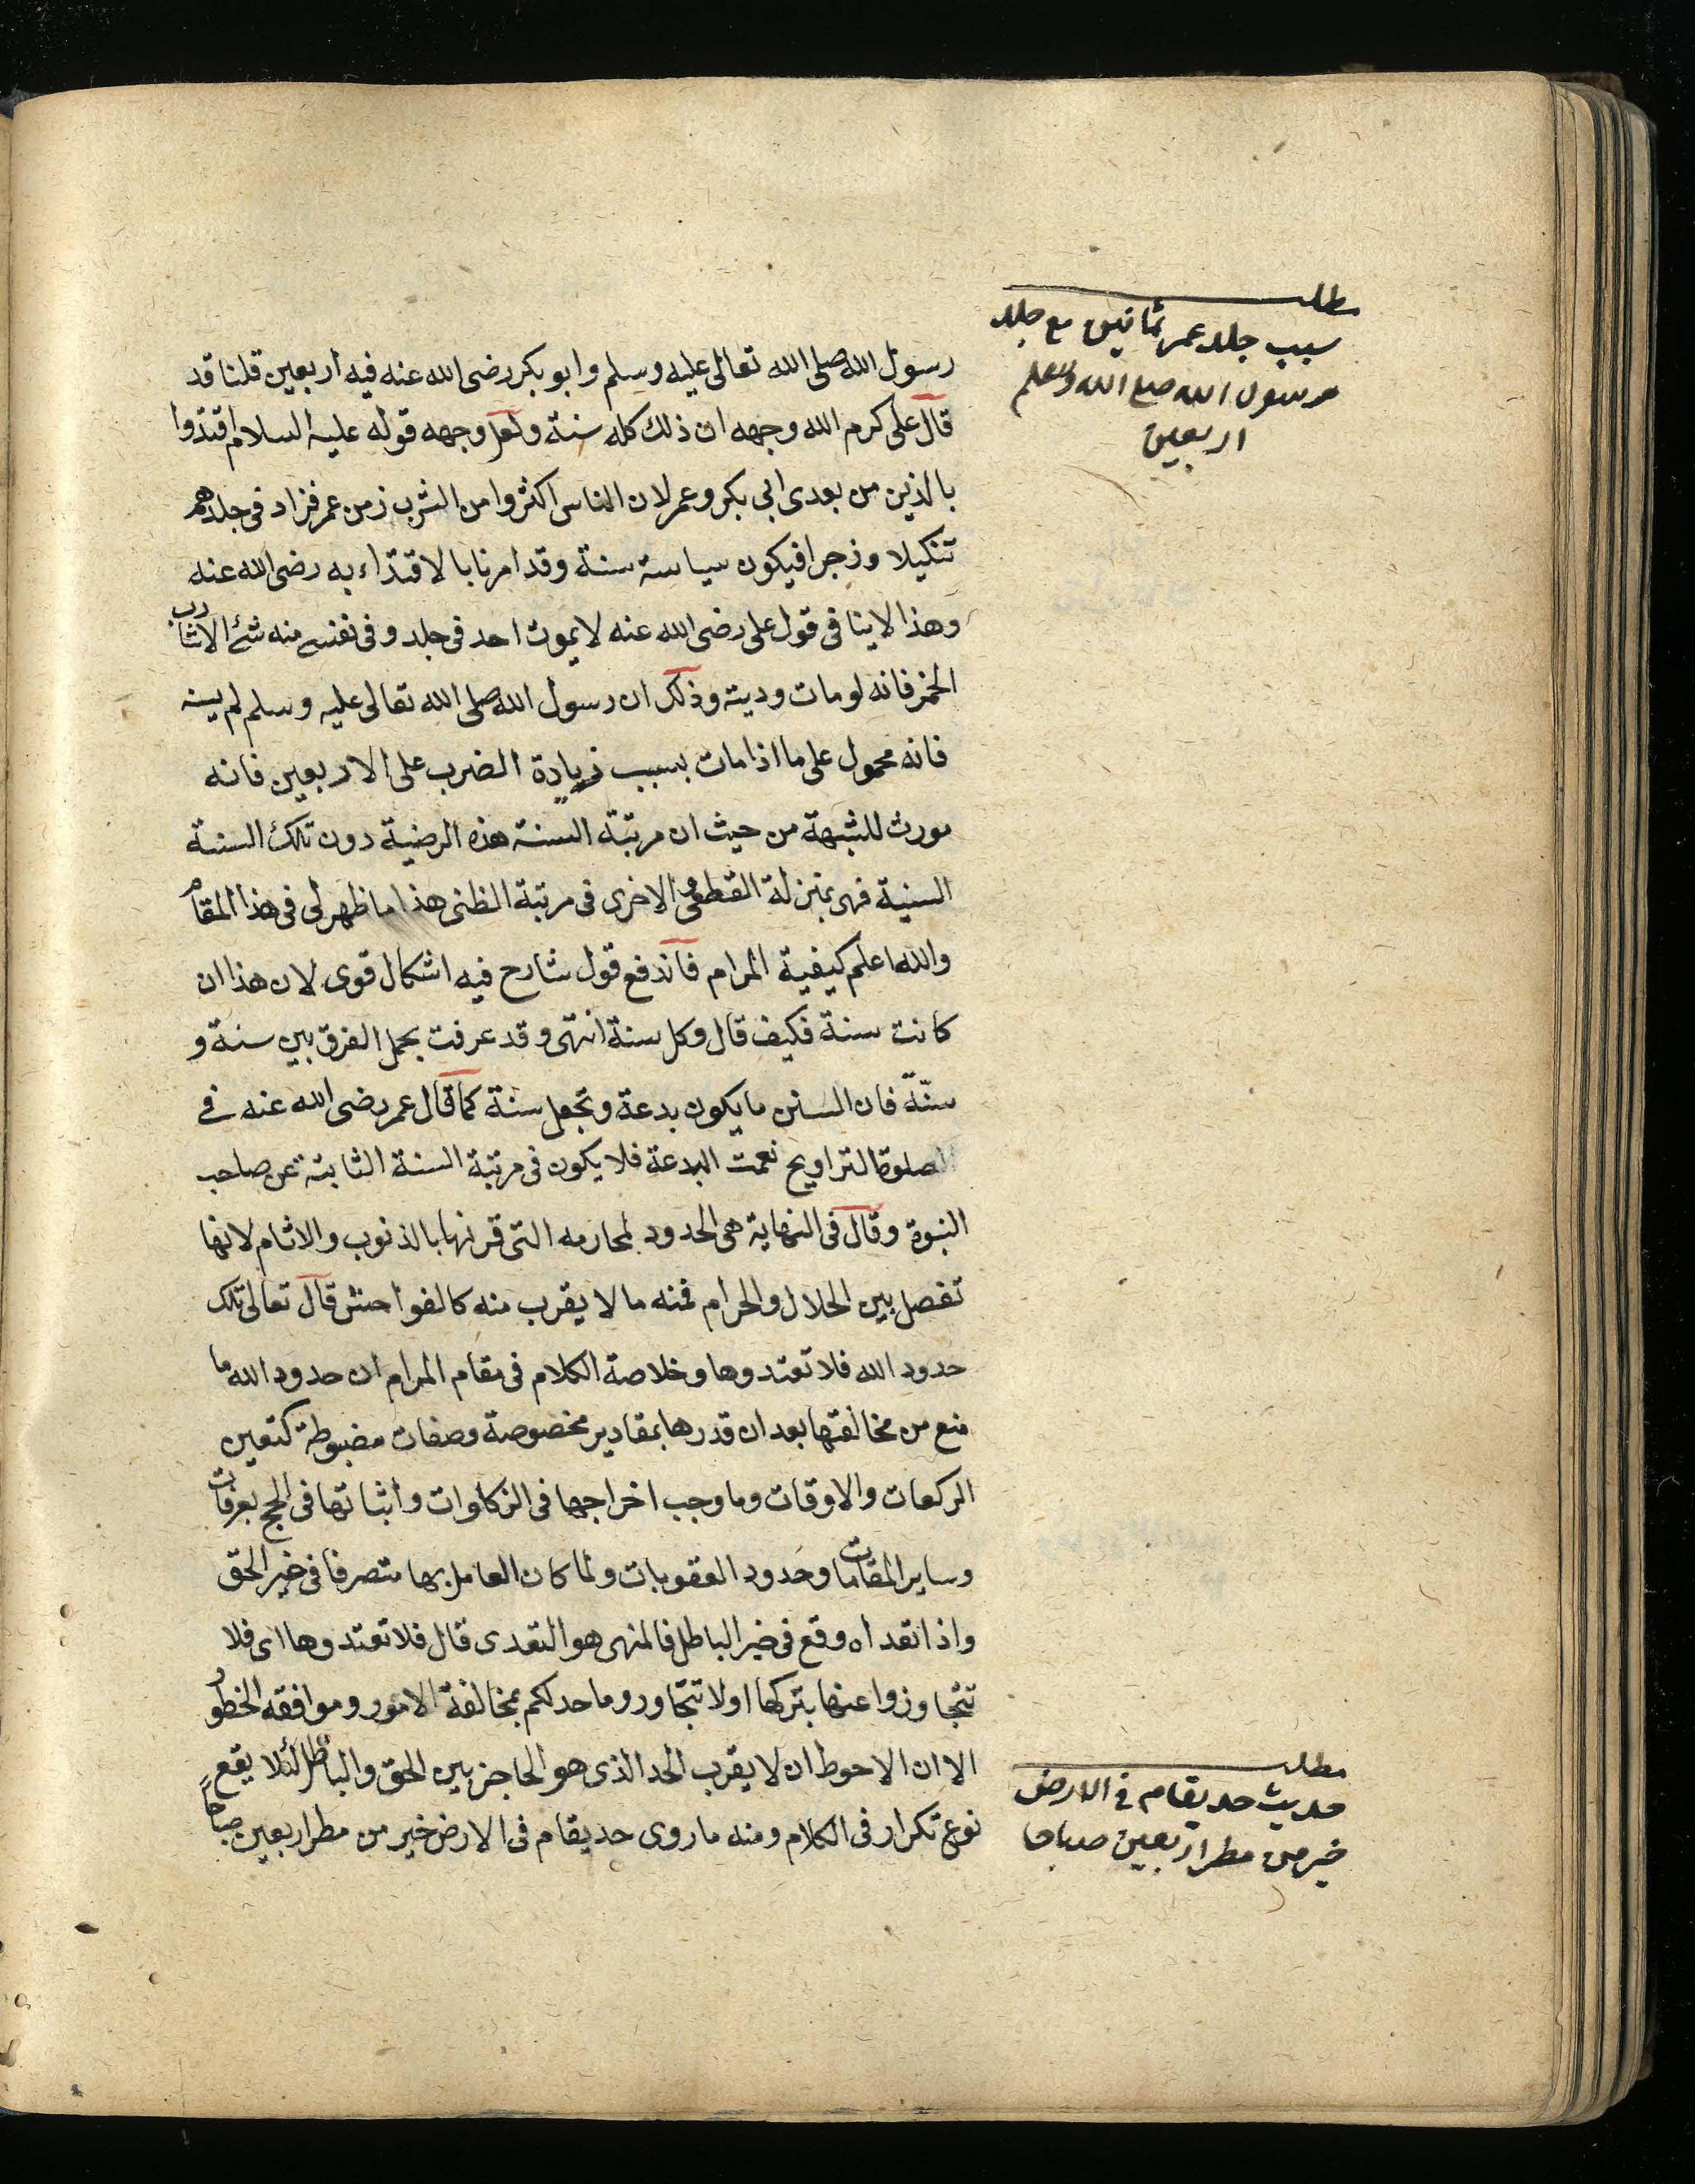 مطلب
سبب جلد عمر ثمانين مع جلد
رسول الله صلى الله وسلم
اربعين
رسول الله صلى الله تعالى عليه وسلم وابو بكر رضى الله عنه فيه اربعين قلنا قد
قال على كرم الله وجهه ان ذلك كله سنة ولعل وجهه قوله عليه السلام اقتدوا
بالذين من بعدى ابى بكر وعمر لان الناس اكثروا من الشرب زمن عمر فزاد فى جلدهم
تنكيلا وزجرا فيكون سياسة سنة وقد امرنا بالاقتداء به رضى الله عنه
وهذا لا ينافى قول على رضى الله عنه لا يموت احد فى جلد وفى نفسى منه شئ الا شارب
الخمر فانه لو مات وديته وذلك ان رسول الله صلى الله تعالى عليه وسلم لم يسنه
فانه محمول على ما اذا مات بسبب زيادة الضرب على الاربعين فانه
مورث للشبهة من حيث ان مرتبة السنة هذه الرضية دون تلك السنة
السنية فهى بمنزلة القطعى والاخرى فى مرتبة الظنى هذا ما ظهر لى فى هذا المقام
والله اعلم كيفية المرام فاندفع قول شارح فيه اشكال قوى لان هذا ان
كانت سنة فكيف قال وكل سنة انتهى وقد عرفت بحمل الفرق بين سنة و
سنّة فان السنن ما يكون بدعة وتجعل سنة كما قال عمر رضى الله عنه فى
الصلوة التراويح نعمت البدعة فلا يكون فى مرتبة السنة الثابتة عن صاحب
النبوة وقال فى النهاية هى الحدود لمحارمه التى قرنها بالذنوب والاثام لانها
تفصل بين الحلال والحرام فمنه ما لا يقرب منه كالفواحش قال تعالى تلك
حدود الله فلا تعتدوها وخلاصة الكلام فى مقام المرام ان حدود الله ما
منع من مخالفتها بعد ان قدرها بمقادير مخصوصة وصفات مضبوطة كتعين
الركعات والاوقات وما وجب اخراجها فى الزكاوات واثباتها فى الحج بعرفات
وساير المقامات وحدود العقوبات ولما كان العامل بها متصرفا فى خير الحق
واذا تعداه وقع فى خير الباطل فالمنهى هو التعدى قال فلا تعتدوها اى فلا
تتجاوزوا عنها بتركها او لا تتجاوروا ما حد لكم بمخالفة الامور وموافقه الخطور
الا ان الاحوط ان لا يقرب الحد الذى هو الحاجز بين الحق والباطل لئلا يقع
نوع تكرار فى الكلام ومنه ما روى حد يقام فى الارض خير من مطر اربعين صباحا
مطلب
حديث حد يقام فى الارض
خير من مطر اربعين صباحا